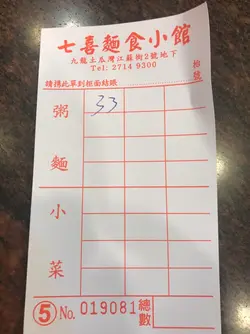 七喜麵食小館
九龍土瓜灣江蘇街2號地下
Tel: 2714 9300
枱號
請携此單到柜面結賬
粥
麵
小
菜
33
⑤ No. 019081 總數